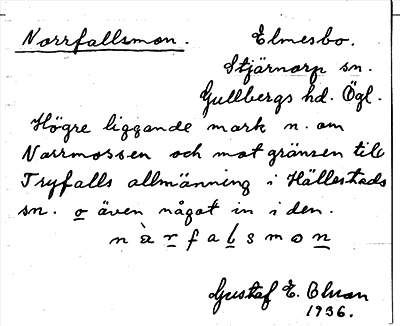 Norrfallsmon. Elmesbo.
Stjärnorp sn.
Gullbergs hd. Ögl.
Högre liggande mark n. om
Narrmossen och mot gränsen till
Tryfalls allmänning i Hällestads
sn. o även något in i den.
nàrfalsmon
Gustaf E. Olson
1936.